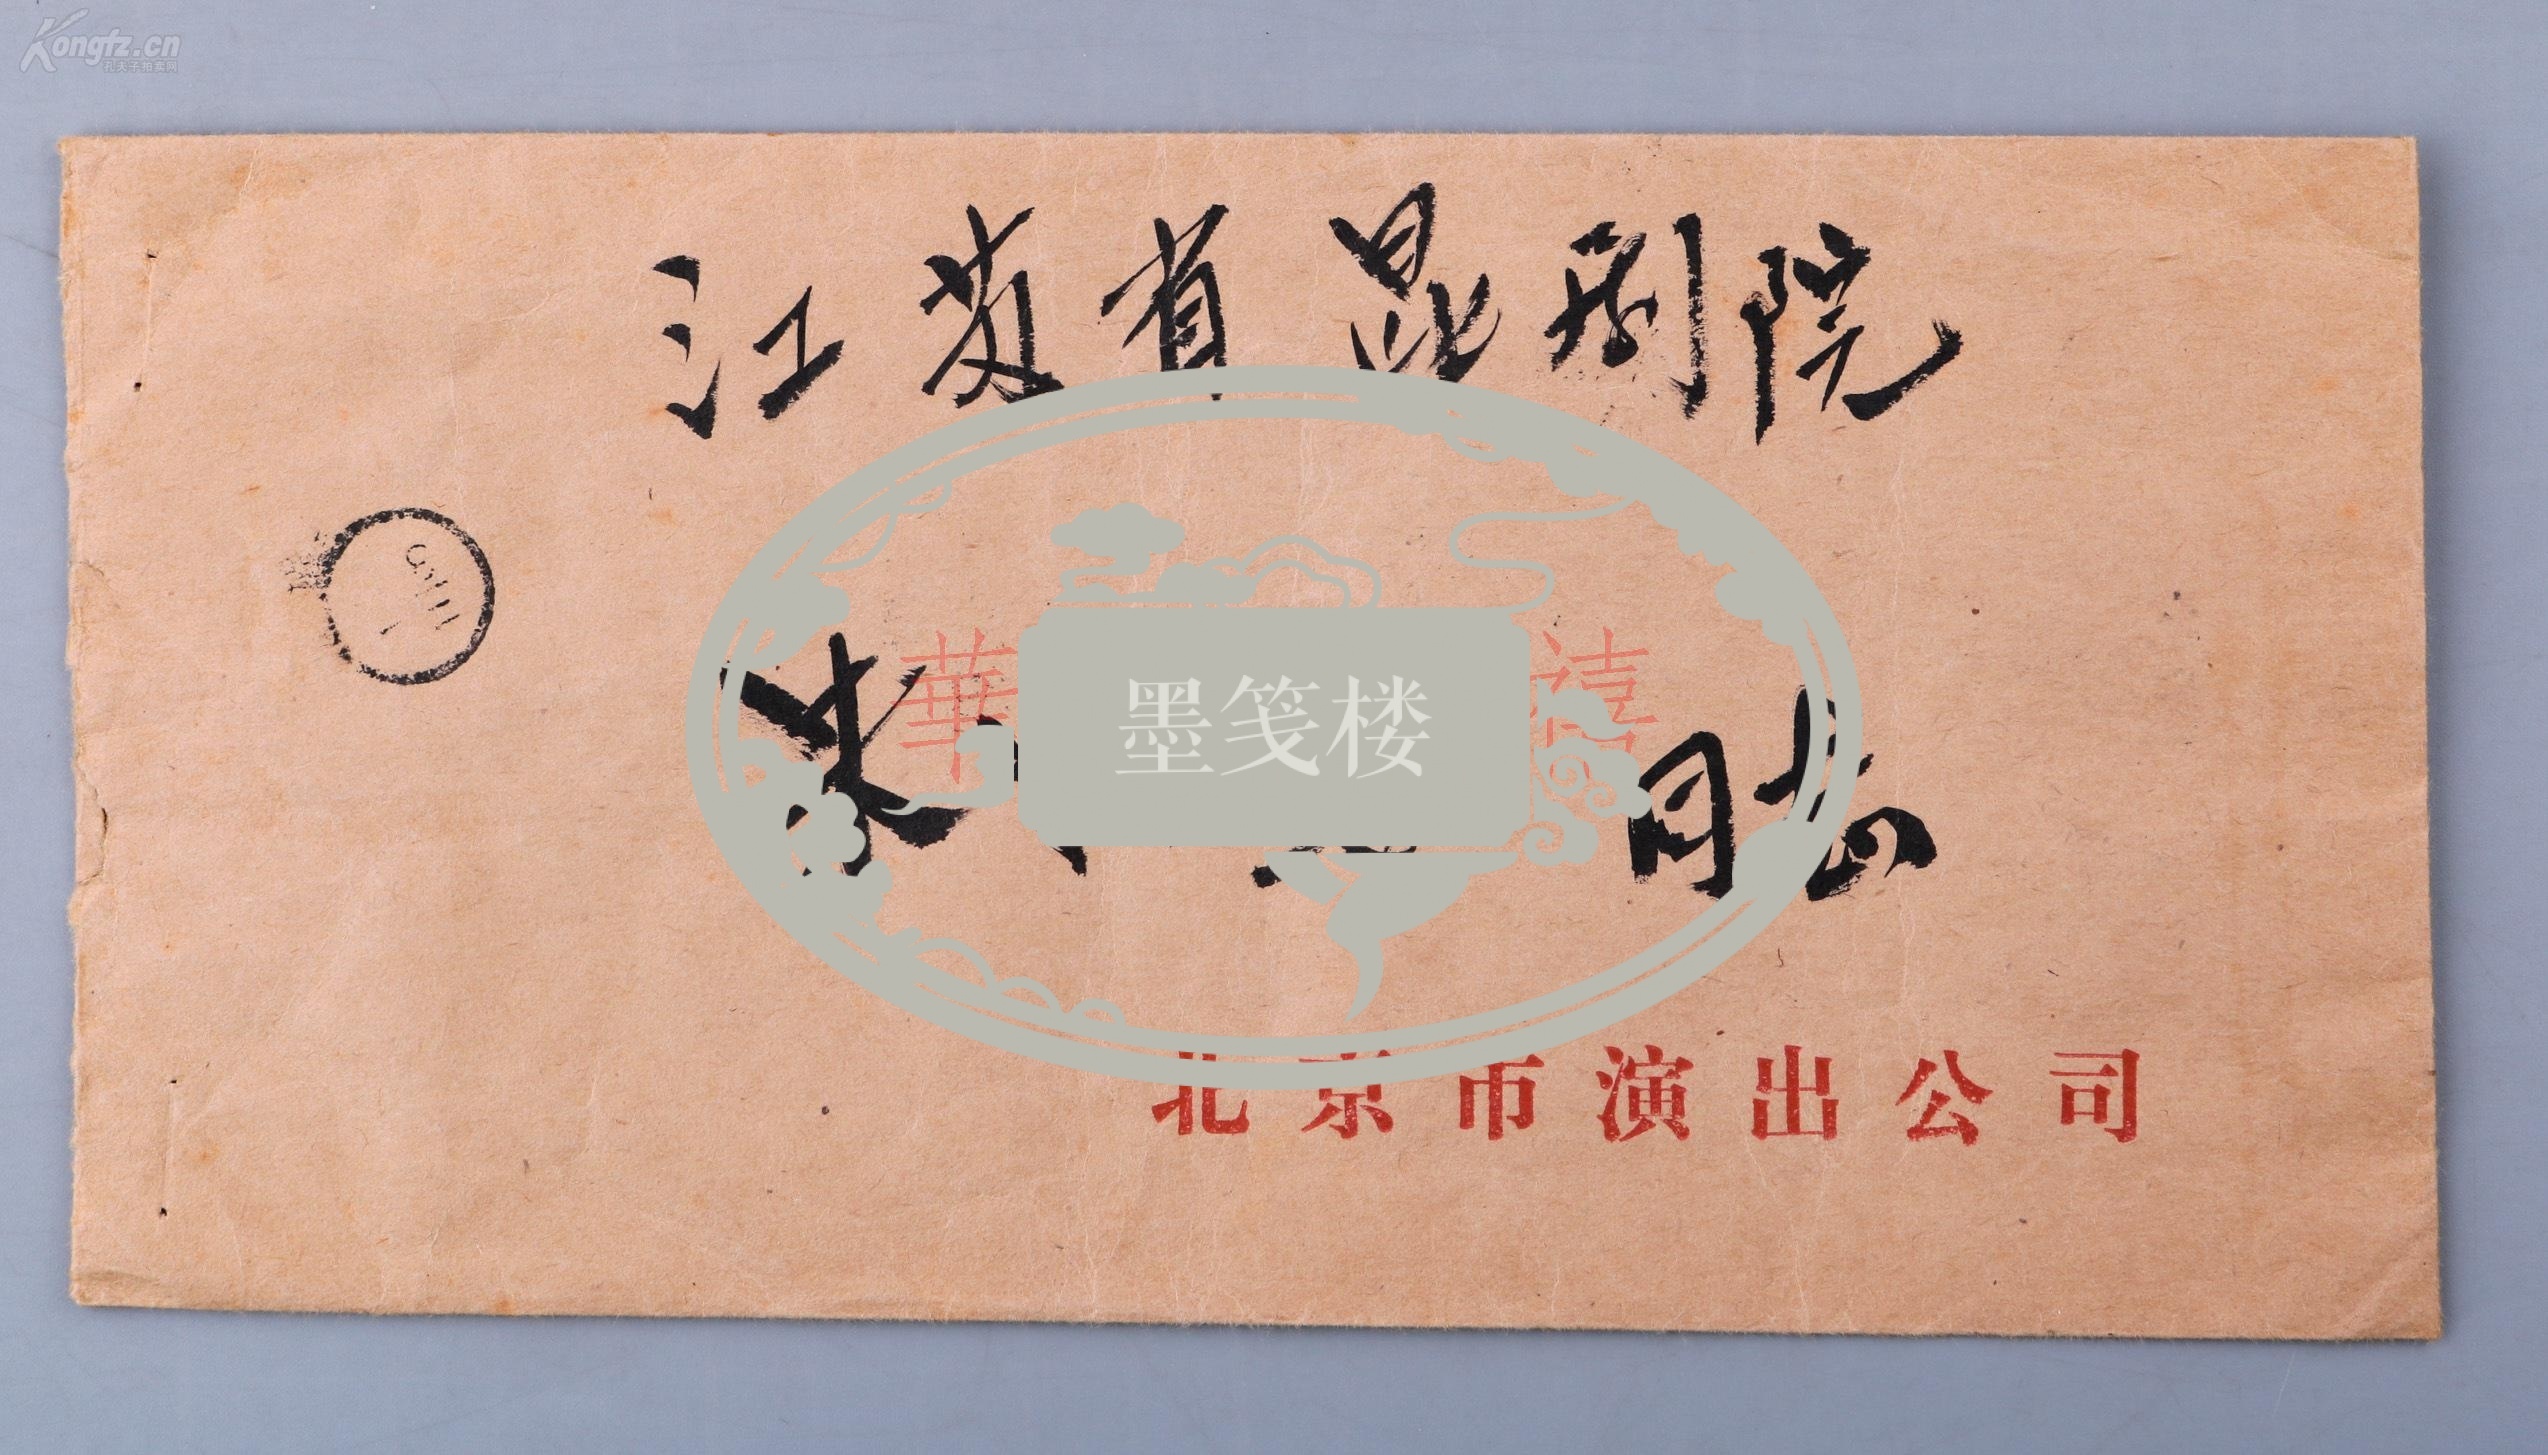 Kongfz.cn
孔夫子拍卖网
江苏省昆剧院
華 禧
墨笺楼
朱 同志
北京市演出公司